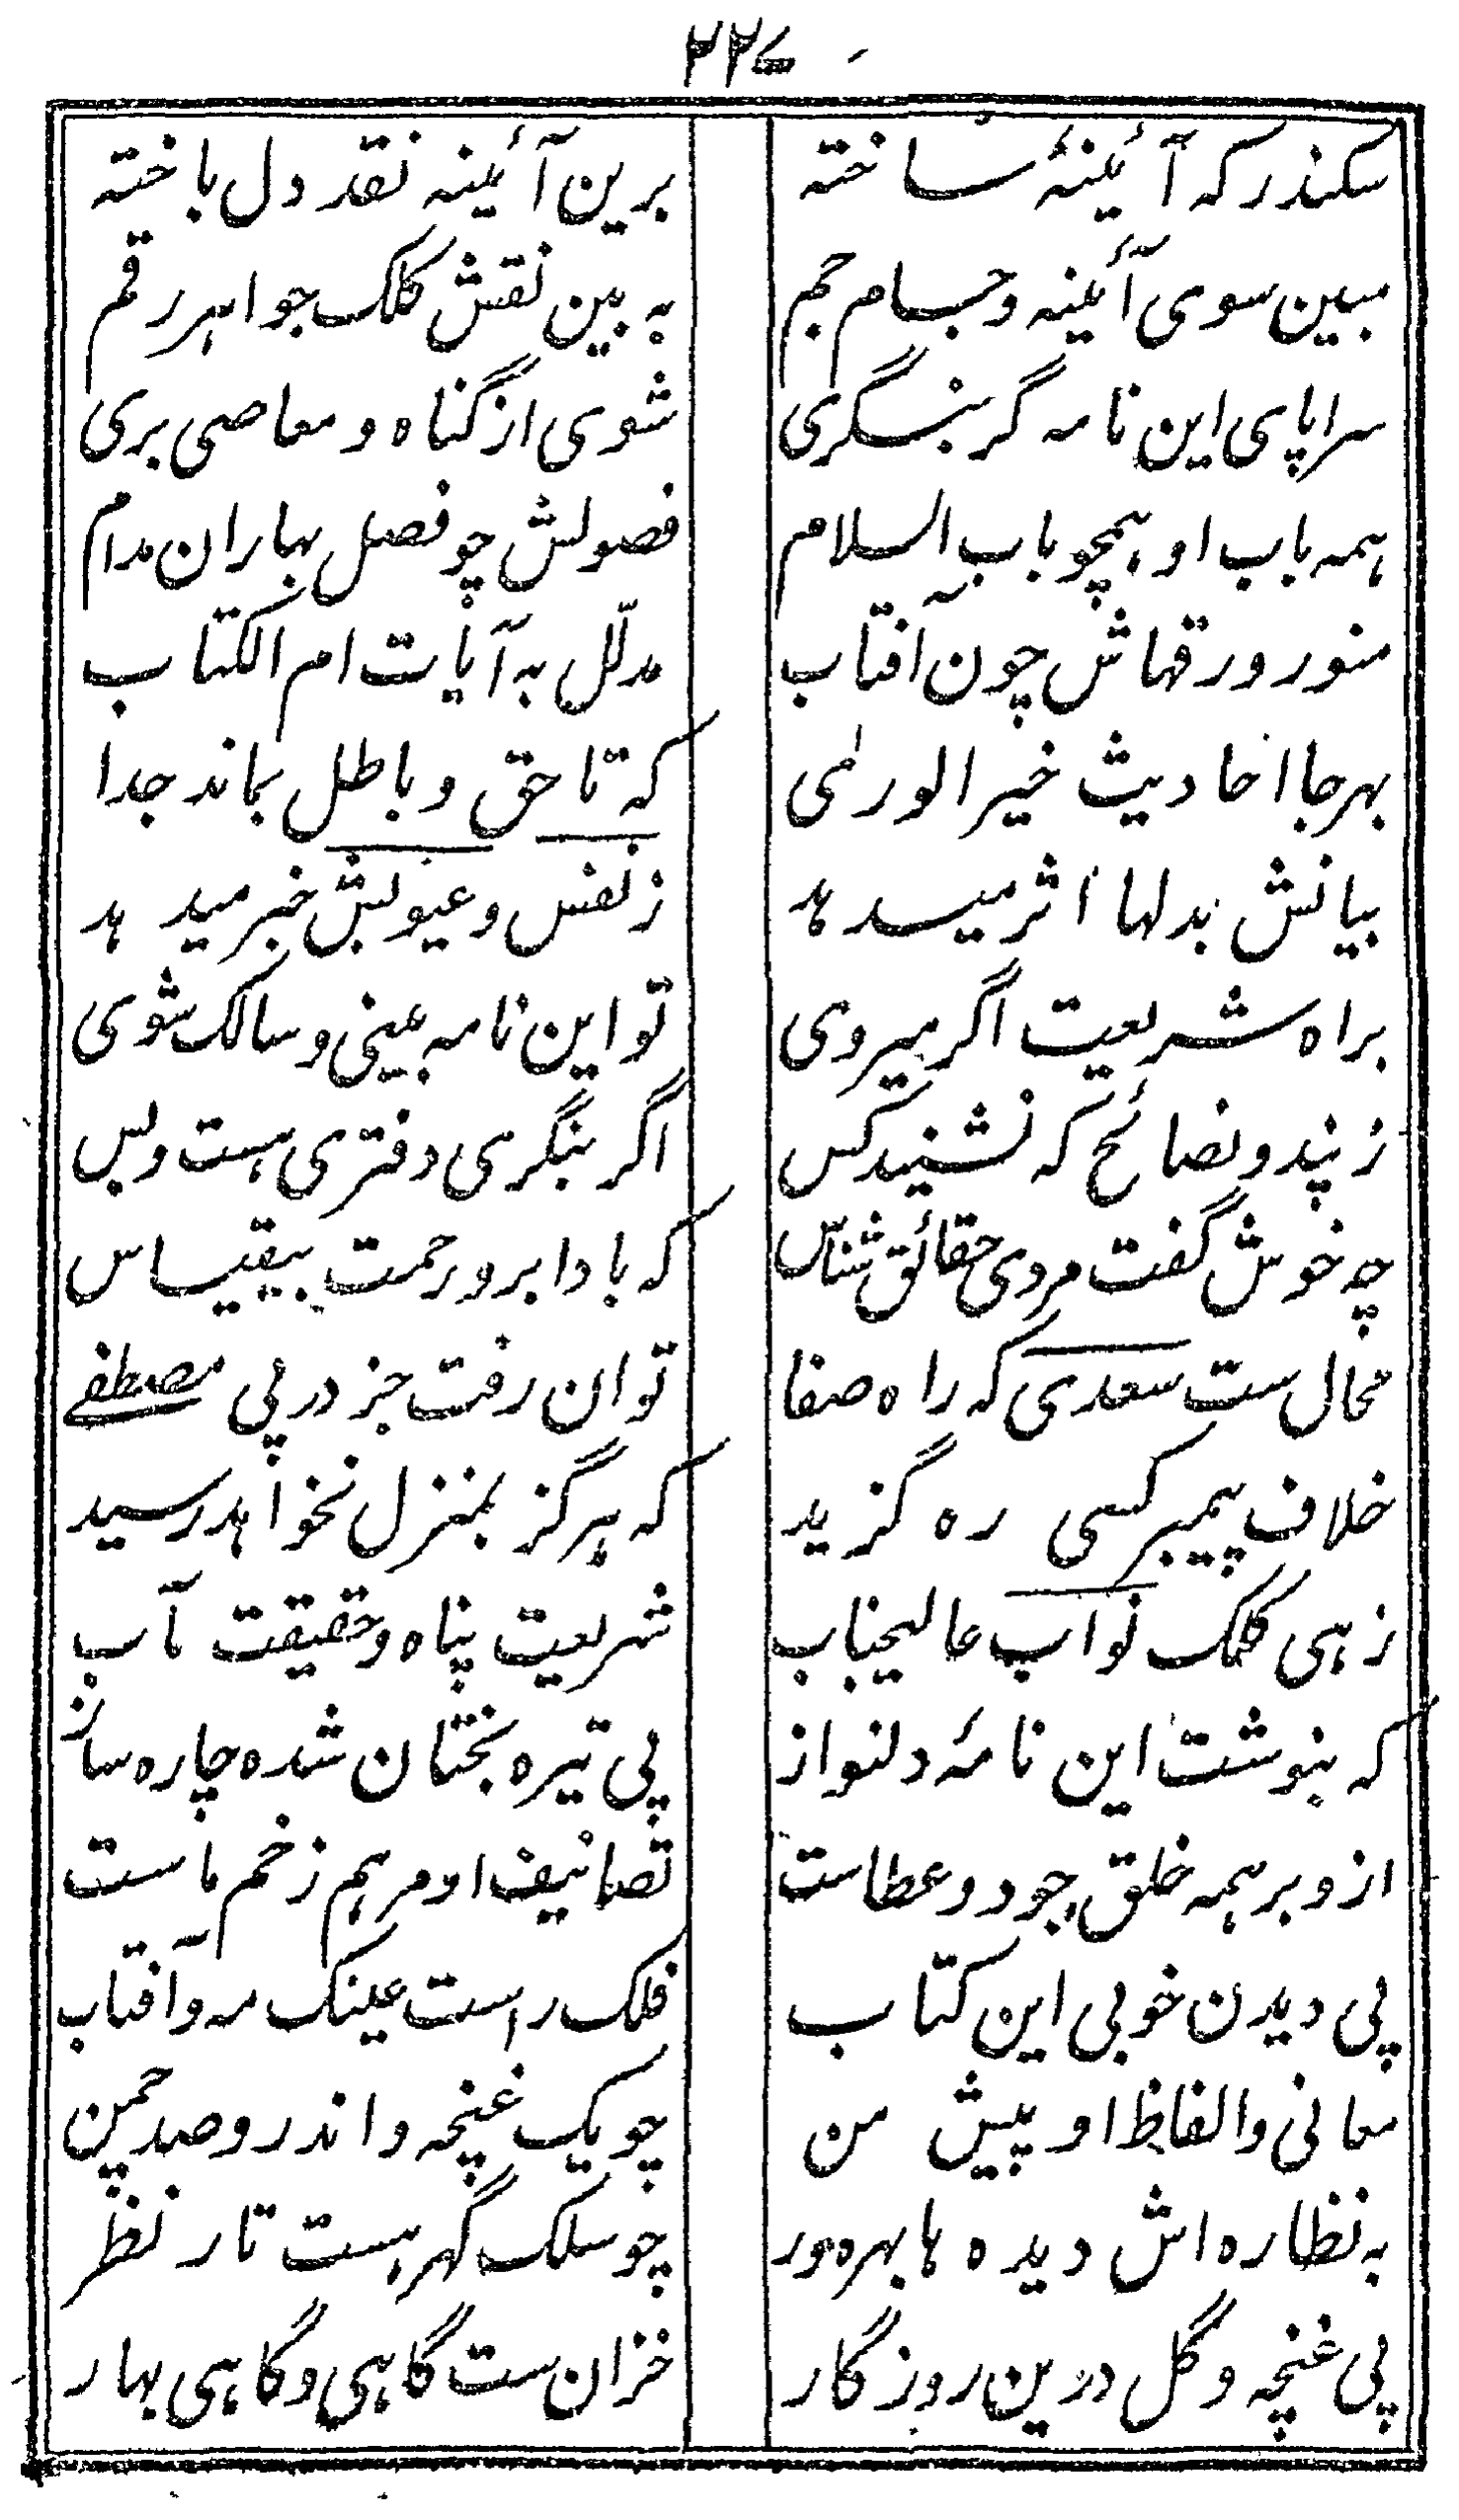 ۲۲۷
سکندر که آئینۂ ساخته برین آئینه نقد دل باخته
مبین سوی آئینه و جام جم به بین نقش کلک جواهر رقم
سراپای این نامه گر بنگری شوی از گناه و معاصی بری
همه باب او همچو باب السلام فصولش چو فصل بهاران مدام
منور ورقهاش چون آفتاب مدلّل به آیات ام الکتاب
بهر جا احادیث خیر الورٰی که تا حق و باطل بماند جدا
بیانش بدلها اثر میدهد ز نفس و عیوبش خبر میدهد
براه شریعت اگر میروی تو این نامه بینی و سالک شوی
ز پند و نصائح که نشنید کس اگر بنگری دفتری هست و بس
چه خوش گفت مردی حقائق شناس که بادا برو رحمت بیقیاس
محال ست سعدی که راه صفا توان رفت جز در پی مصطفے
خلاف پیمبر کسی ره گزید که هرگز بمنزل نخواهد رسید
زهی کلک نواب عالیجناب شریعت پناه و حقیقت مآب
که بنوشت این نامۂ دلنواز پی تیره بختان شده چاره ساز
ازو بر همه خلق جود و عطاست تصانیف او مرهم زخم ماست
پی دیدن خوبی این کتاب فلک راست عینک مه و آفتاب
معانی و الفاظ او پیش من چو یک غنچه و اندرو صد چمن
به نظاره اش دیده ها بهره ور چو سلک گهر هست تار نظر
پی غنچه و گل درین روزگار خزان ست گاهی و گاهی بهار